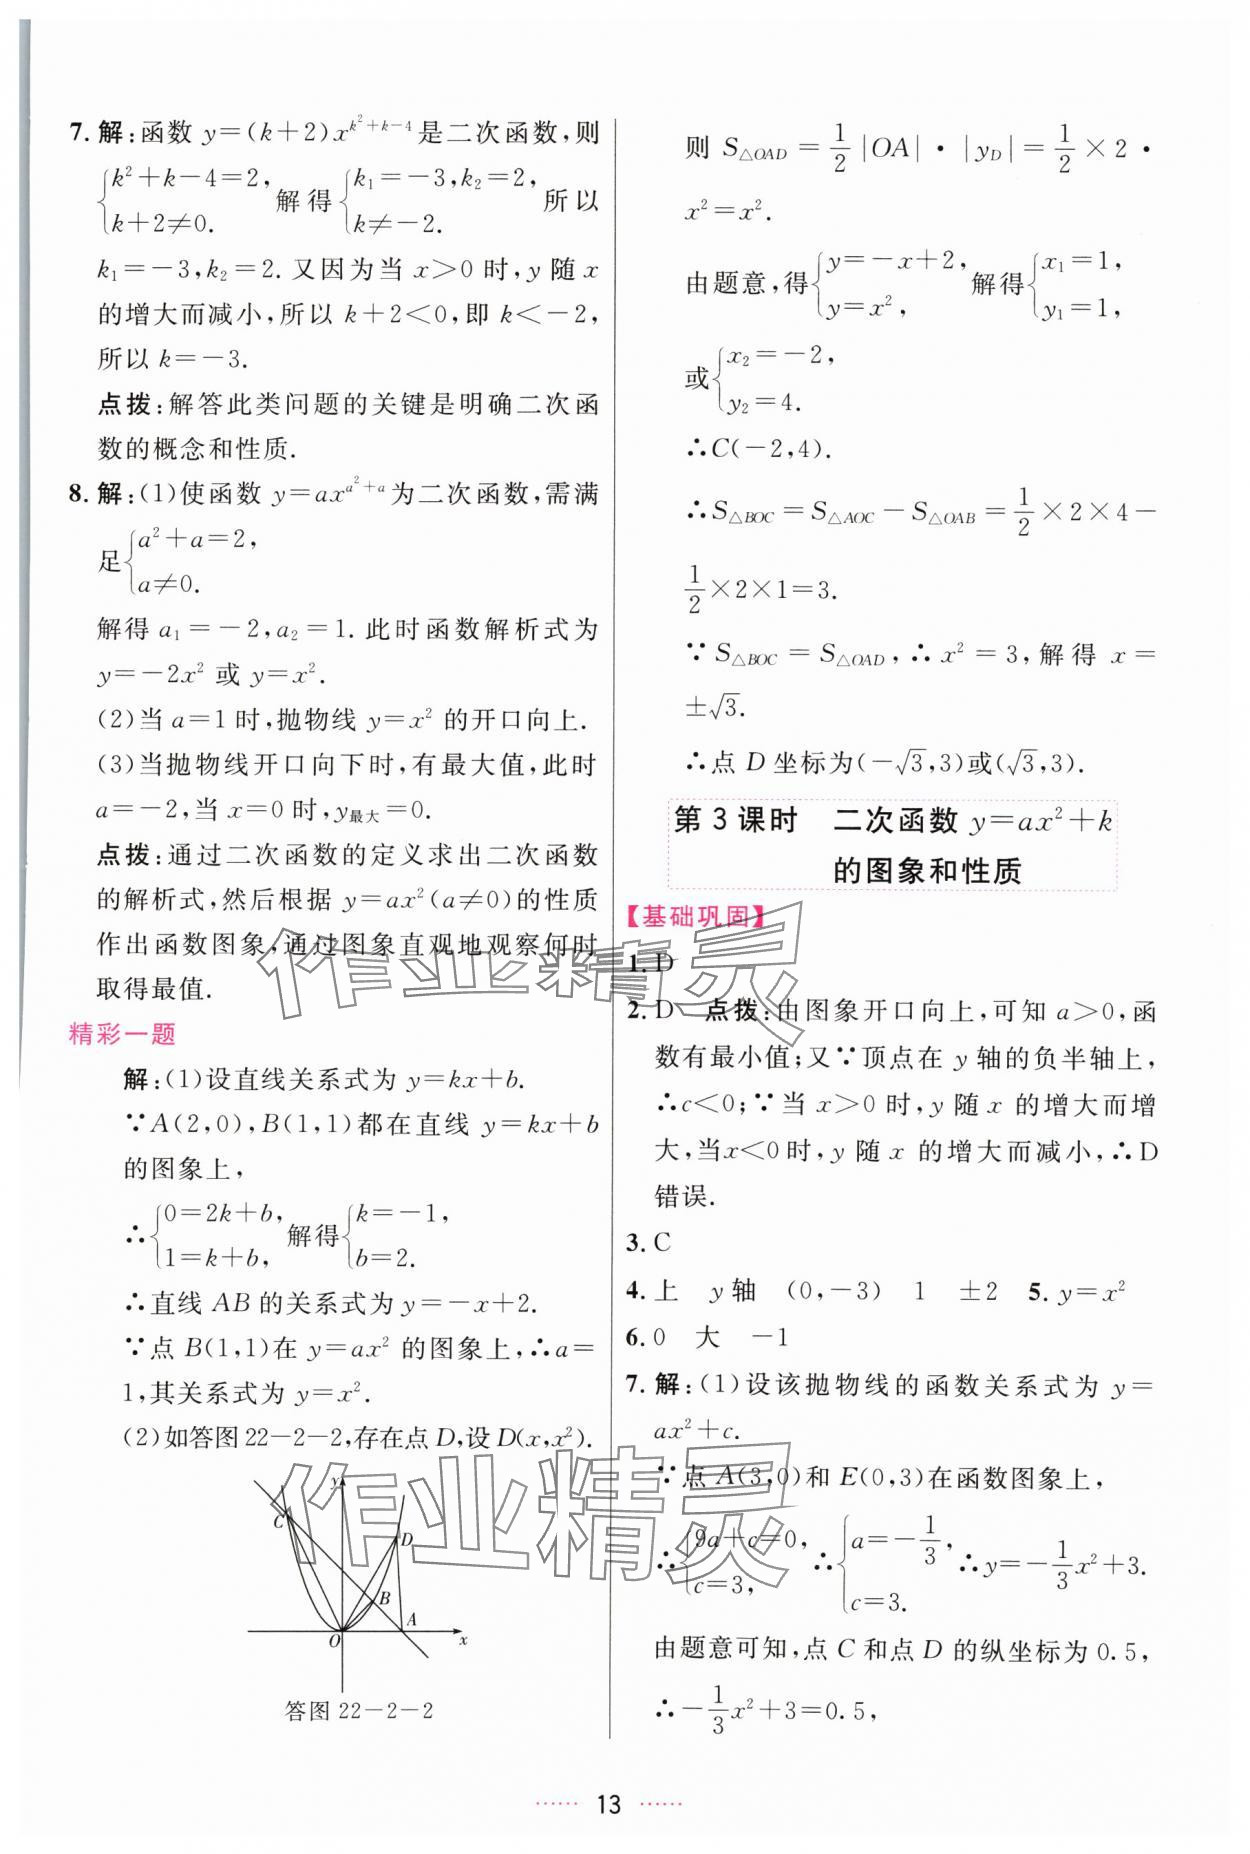 7. 解:函数 y=(k+2)x^{k²+k-4}是二次函数,则
{k²+k-4=2, k+2≠0. 解得{k₁=-3,k₂=2, k≠-2. 所以
k₁=-3,k₂=2. 又因为当 x>0 时,y 随 x
的增大而减小,所以 k+2<0,即 k<-2,
所以 k=-3.
点拨:解答此类问题的关键是明确二次函
数的概念和性质.
8. 解:(1)使函数 y=ax^{a²+a}为二次函数,需满
足{a²+a=2, a≠0.
解得 a₁=-2,a₂=1. 此时函数解析式为
y=-2x² 或 y=x².
(2)当 a=1 时,抛物线 y=x² 的开口向上.
(3)当抛物线开口向下时,有最大值,此时
a=-2,当 x=0 时,y最大=0.
点拨:通过二次函数的定义求出二次函数
的解析式,然后根据 y=ax²(a≠0)的性质
作出函数图象,通过图象直观地观察何时
取得最值.
精彩一题
解:(1)设直线关系式为 y=kx+b.
∵A(2,0),B(1,1)都在直线 y=kx+b
的图象上,
∴{0=2k+b, 1=k+b, 解得{k=-1, b=2.
∴直线 AB 的关系式为 y=-x+2.
∵点 B(1,1)在 y=ax² 的图象上,∴a=
1,其关系式为 y=x².
(2)如答图 22-2-2,存在点 D,设 D(x,x²).
y
C
D
B
A
O
x
答图 22-2-2
则 S△OAD = 1/2 |OA|·|yD| = 1/2 × 2 ·
x²=x².
由题意,得{y=-x+2, y=x², 解得{x₁=1, y₁=1,
或{x₂=-2, y₂=4.
∴C(-2,4).
∴S△BOC = S△AOC - S△OAB = 1/2 ×2×4-
1/2 ×2×1=3.
∵S△BOC = S△OAD,∴x²=3,解得 x=
±√3.
∴点 D 坐标为(-√3,3)或(√3,3).
第 3 课时 二次函数 y=ax²+k
的图象和性质
【基础巩固】
1. D
2. D 点拨:由图象开口向上,可知 a>0,函
数有最小值;又∵顶点在 y 轴的负半轴上,
∴c<0;∵当 x>0 时,y 随 x 的增大而增
大,当x<0时,y 随 x 的增大而减小,∴D
错误.
3. C
4. 上 y 轴 (0,-3) 1 ±2 5. y=x²
6. 0 大 -1
7. 解:(1)设该抛物线的函数关系式为 y=
ax²+c.
∵点 A(3,0)和 E(0,3)在函数图象上,
∴{9a+c=0, c=3, ∴{a=-1/3, c=3. ∴y=-1/3x²+3.
由题意可知,点 C 和点 D 的纵坐标为 0.5,
∴-1/3x²+3=0.5,
13
作业精灵
作业精灵